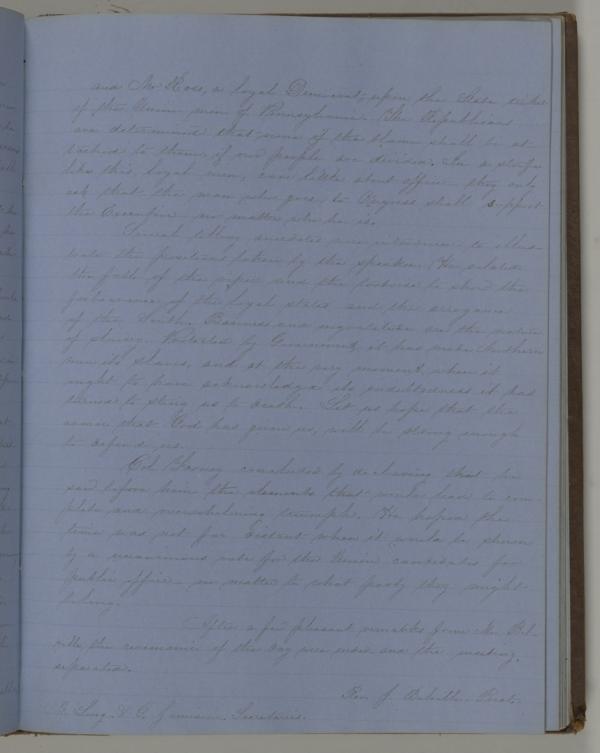 and Mr Ross, a loyal Democrat, upon the State ticket
of the Union men of Pennsylvania. The Republicans
are determined that none of the blame shall be at-
tached to them if our people are divided. In a strife
like this, loyal men care little about office - they only
ask that the man who goes to Congress shall support
the Executive no matter who he is.
Several telling anecdotes were interwoven to illus-
trate the positions taken by the speaker. He related
the fable of the viper and the tortoise to show the
forbearance of the loyal states and the arrogance
of the South. Baseness and ingratitude are the nature
of slavery. Protected by Government, it has made Northern
men its slaves, and at the very moment when it
ought to have acknowledged its indebtedness it has
turned to sting us to death. Let us hope that the
armor that God has given us, will be strong enough
to defend us.
Col. Forney concluded by declaring that he
saw before him the elements that would lead to com-
plete and overwhelming triumph. He hoped the
time was not far distant when it would be shown
by a unanimous vote for the Union candidates for
public office - no matter to what party they might
belong.
After a few pleasant remarks from Mr. Bel-
ville, the ceremonies of the day were ended and the meeting
separated.
Rev. J. Belville, Prest.
Secretaries.